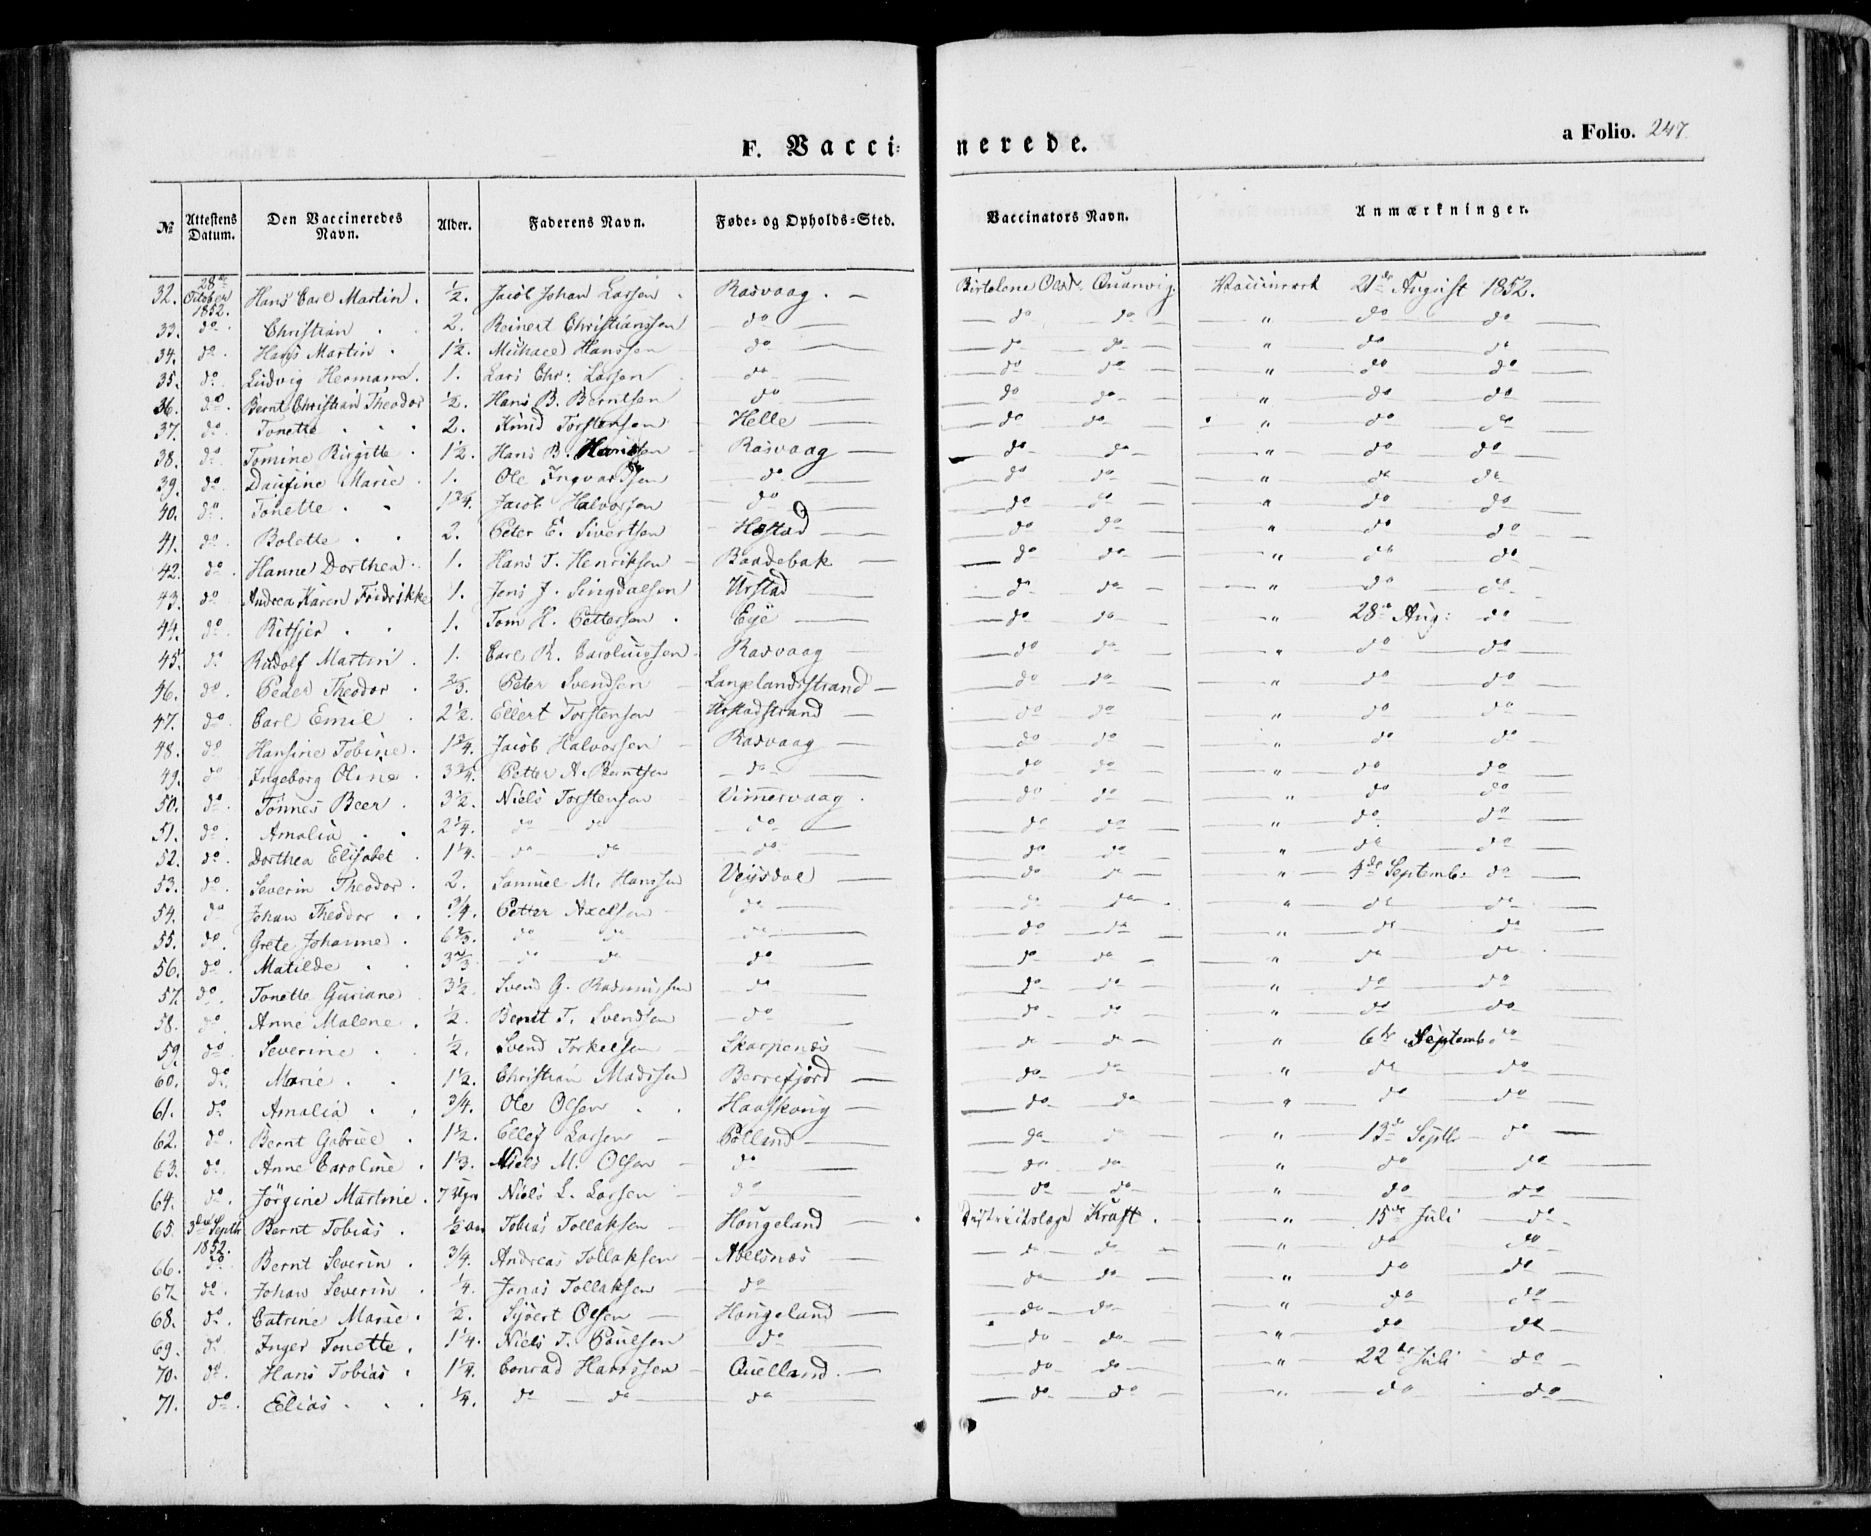 F. Vacci-nerede.
a Folio. 247
№ | Attestens Datum. | Den Vaccineredes Navn. | Alder. | Faderens Navn. | Føde- og Opholds-Sted. | Vaccinators Navn. | Anmærkninger.
32. | 28de October 1852. | Hans Carl Martin. | ½. | Jacob Johan Larsen. | Rasvaag. | Quanvig | Vaccineret 21de August 1852.
33. | do. | Christian | 2. | Reinert Christianssen | do | do do | " do do
34. | do. | Hans Martin. | 1½. | Michael Hanssen | do | do do | " do do
35. | do. | Ludvig Hermann. | 1. | Lars Chr: Larsen | do | do do | " do do
36. | do. | Bernt Christian Theodor | ½. | Hans B. Berntsen | do | do do | " do do
37. | do. | Tonette | 2. | Knud Torstensen | Helle | do do | " do do
38. | do. | Tomine Birgitte | 1½. | Hans B. Hanssen | Rasvaag | do do | " do do
39. | do. | Daufine Marie | 1. | Ole Ingvardsen | do | do do | " do do
40. | do. | Tonette | 1¾. | Jacob Halvorsen | do | do do | " do do
41. | do. | Bolette | 2. | Peter E. Sivertsen | | do do | " do do
42. | do. | Hanne Dorthea. | 1. | Hans T. Henriksen | Baadebak | do do | " do do
43. | do | Andrea Karen Fredrikke | 1. | Jens J. | Urstad | do do | " do do
44. | do. | | 1. | Tom H. Pettersen. | Eye | do do | " 28de Aug: do
45. | do | Rudolf Martin. | 1. | Carl R. Caroliussen | Rasvaag | do do | " do do
46. | do. | Peder Theodor | ⅔. | Peter Svendsen | Langelandsstrand | do do | " do do
47. | do. | Carl Emil | 2½. | Ellert Torstensen | Urstadstrand | do do | " do do
48. | do | Hansine Tobine. | 1¾. | Jacob Halvorsen | Rasvaag | do do | " do do
49. | do | Ingeborg Oline. | 3¾. | Petter A. Berntsen | do | do do | " do do
50. | do. | Tønnes Beer. | 3½. | Niels Torstensen | Vimervaag. | do do | " do do
51. | do. | Amalia | 2¼. | do do | do | do do | " do do
52. | do. | Dorthea Elisabet | 1¼. | do do | do | do do | " do do
53. | do. | Severin Theodor. | 2. | Samuel M. Hanssen | Veisdal | do do | " 4de Septemb. do
54. | do | Johan Theodor. | ¾. | Petter Axelsen | do | do do | " do do
55. | do. | Grete Johanne. | 6⅔. | do do | do | do do | " do do
56. | do. | Matilde | 3⅔. | do do | do | do do | " do do
57. | do. | Tonette Guriane | 3½. | Svend G. Rasmussen | do | do do | " do do
58. | do. | Anne Malene. | ½. | Bernt T. Svendsen | do | do do | " do do
59. | do. | Severine | ½. | Svend Torkelsen | Skarpenæs | do do | " 6te Septemb. do
60. | do. | Marie. | 1½. | Christian Madssen | Berrefjord | do do | " do do
61. | do | Amalia | ¾. | Ole Olsen | | do do | " do do
62. | do. | Bernt Gabriel | 1½. | Ellef Larsen | Rølland | do do | " 13de Septb. do
63. | do. | Anne Caroline. | 1⅓. | Niels M. Olsen | do | do do | " do do
64. | do. | Jørgine Martine. | 7 Uger | Niels L. Larsen | do | do do | " do do
65. | 3die Septbr 1852. | Bernt Tobias. | ½ aar | Tobias Tollaksen | Haugeland | Districtslæge Kraft. | " 15de Juli do
66. | do. | Bernt Severin. | ¾. | Andreas Tollaksen | Abelsnæs | do do | " do do
67. | do. | Johan Severin | ¼. | Jonas Tollaksen | do | do do | " do do
68. | do. | Catrine Marie. | ½. | Syvert Olsen | Haugeland | do do | " do do
69. | do. | Inger Tonette. | 1¼. | Niels T. Paulsen | do | do do | " do do
70. | do. | Hans Tobias. | 1¼. | Conrad Hanssen | Quelland. | do do | " 22de Juli do
71. | do. | Elias. | ¼. | do do | do | do do | " do do